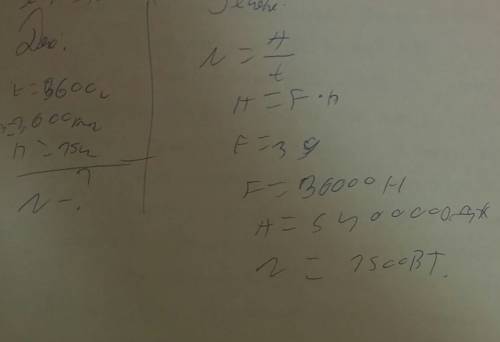 Дано:
t = 3600с
3600кг
h = 15м
N - ?
N = A / t
A = F · h
F = mg
F = 36000 Н
A = 5400000 Дж
N = 1500 ВТ.